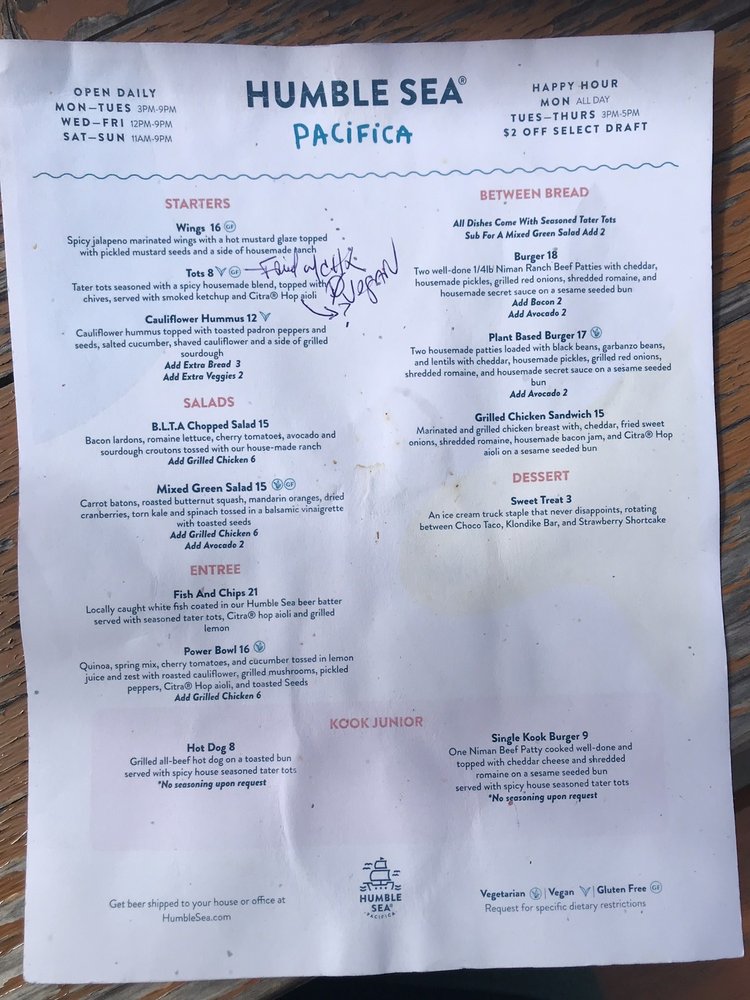 OPEN DAILY
MON—TUES 3PM-9PM
WED—FRI 12PM-9PM
SAT—SUN 11AM-9PM
HUMBLE SEA®
PACiFiCA
HAPPY HOUR
MON ALL DAY
TUES—THURS 3PM-5PM
$2 OFF SELECT DRAFT
STARTERS
Wings 16 GF
Spicy jalapeno marinated wings with a hot mustard glaze topped
with pickled mustard seeds and a side of housemade ranch
Tots 8 GF
Tater tots seasoned with a spicy housemade blend, topped with
chives, served with smoked ketchup and Citra® Hop aioli
Fried w/
VEGAN
Cauliflower Hummus 12
Cauliflower hummus topped with toasted padron peppers and
seeds, salted cucumber, shaved cauliflower and a side of grilled
sourdough
Add Extra Bread 3
Add Extra Veggies 2
SALADS
B.L.T.A Chopped Salad 15
Bacon lardons, romaine lettuce, cherry tomatoes, avocado and
sourdough croutons tossed with our house-made ranch
Add Grilled Chicken 6
Mixed Green Salad 15 GF
Carrot batons, roasted butternut squash, mandarin oranges, dried
cranberries, torn kale and spinach tossed in a balsamic vinaigrette
with toasted seeds
Add Grilled Chicken 6
Add Avocado 2
ENTREE
Fish And Chips 21
Locally caught white fish coated in our Humble Sea beer batter
served with seasoned tater tots, Citra® hop aioli and grilled
lemon
Power Bowl 16
Quinoa, spring mix, cherry tomatoes, and cucumber tossed in lemon
juice and zest with roasted cauliflower, grilled mushrooms, pickled
peppers, Citra® Hop aioli, and toasted Seeds
Add Grilled Chicken 6
BETWEEN BREAD
All Dishes Come With Seasoned Tater Tots
Sub For A Mixed Green Salad Add 2
Burger 18
Two well-done 1/4lb Niman Ranch Beef Patties with cheddar,
housemade pickles, grilled red onions, shredded romaine, and
housemade secret sauce on a sesame seeded bun
Add Bacon 2
Add Avocado 2
Plant Based Burger 17
Two housemade patties loaded with black beans, garbanzo beans,
and lentils with cheddar, housemade pickles, grilled red onions,
shredded romaine, and housemade secret sauce on a sesame seeded
bun
Add Avocado 2
Grilled Chicken Sandwich 15
Marinated and grilled chicken breast with, cheddar, fried sweet
onions, shredded romaine, housemade bacon jam, and Citra® Hop
aioli on a sesame seeded bun
DESSERT
Sweet Treat 3
An ice cream truck staple that never disappoints, rotating
between Choco Taco, Klondike Bar, and Strawberry Shortcake
KOOK JUNIOR
Hot Dog 8
Grilled all-beef hot dog on a toasted bun
served with spicy house seasoned tater tots
*No seasoning upon request
Single Kook Burger 9
One Niman Beef Patty cooked well-done and
topped with cheddar cheese and shredded
romaine on a sesame seeded bun
served with spicy house seasoned tater tots
*No seasoning upon request
Get beer shipped to your house or office at
HumbleSea.com
HUMBLE
SEA®
PACIFICA
Vegetarian | Vegan | Gluten Free GF
Request for specific dietary restrictions